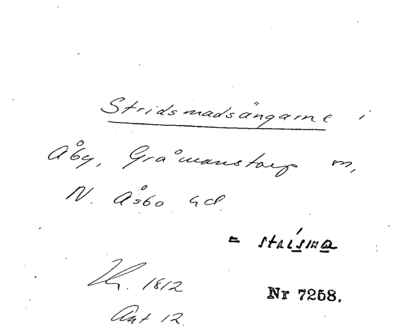 Stridsmadsängarne i
Åby, Gråmanstorp sn,
N. Åsbo hd.
= strísma
1812
Akt 12.
Nr 7258.